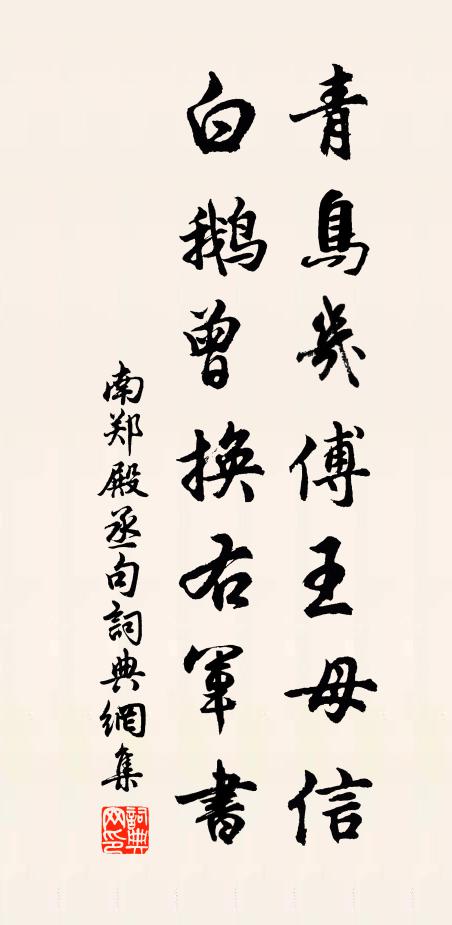 青鳥幾傅王母信
白鵝曾換右軍書
南郑殿丞句詞典網集
詞典网印